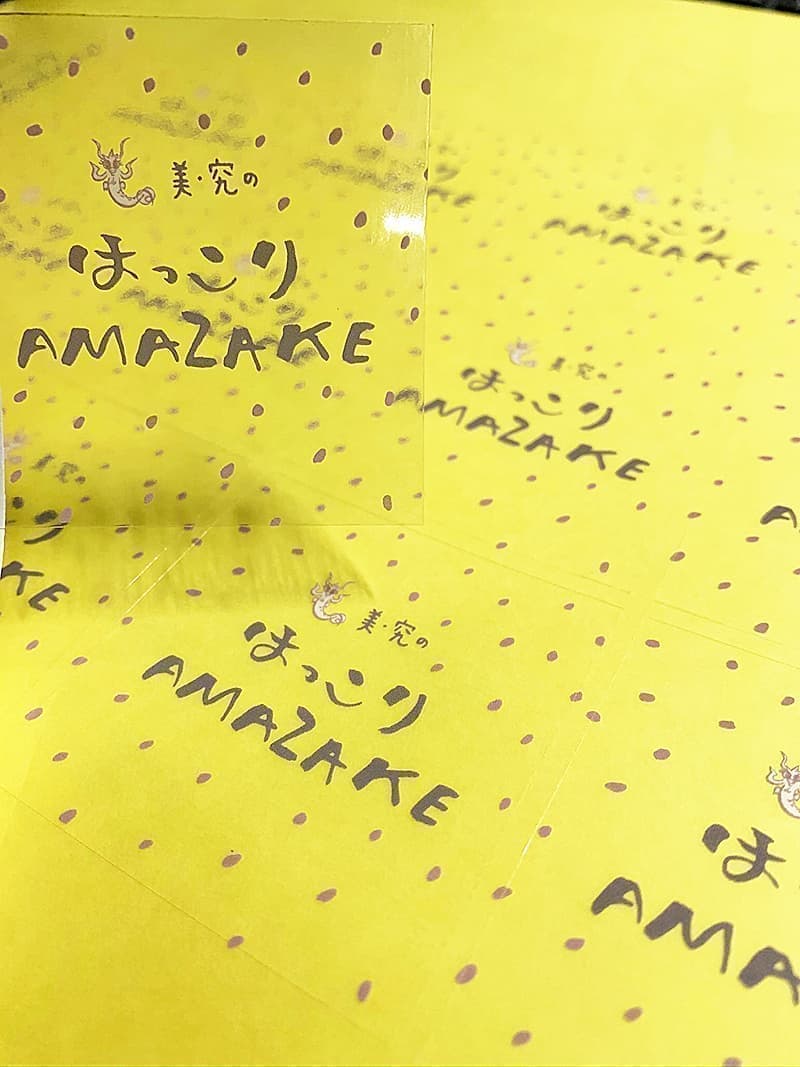 美・究の
はっこり
AMAZAKE
美・究の
AMAZAKE
美・究の
はっこり
AMAZAKE
KE
美・究の
はっこり
AMAZAKE
は
AMA